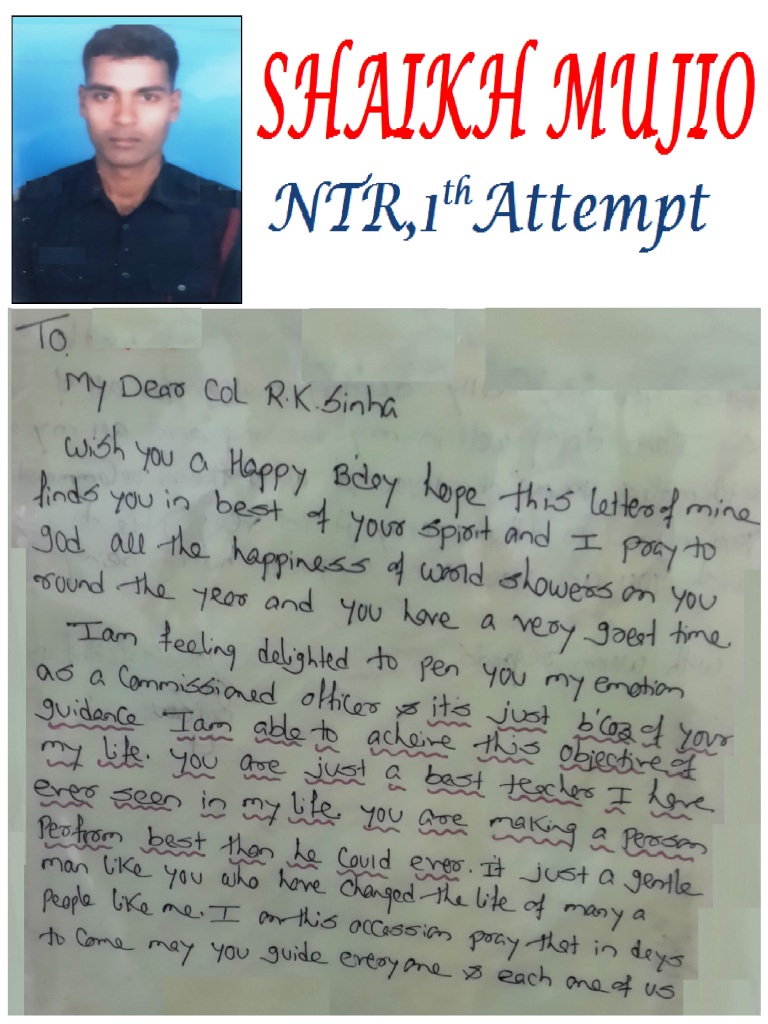 SHAIKH MUJIO
NTR,1th Attempt
To.
My Dear Col R.K.Sinha
Wish you a Happy B'day hope this letter of mine
finds you in best of your spirit and I pray to
god all the happiness of world showers on you
round the year and you have a very great time
I am feeling delighted to pen you my emotion
as a Commissioned officer & it's just b'coz of your
guidance I am able to acheive this objective of
my life. you are just a best teacher I have
ever seen in my life. you are making a person
Perfrom best than he could ever. It just a gentle
man like you who have changed the life of many a
people like me. I on this accession pray that in days
to come may you guide everyone & each one of us